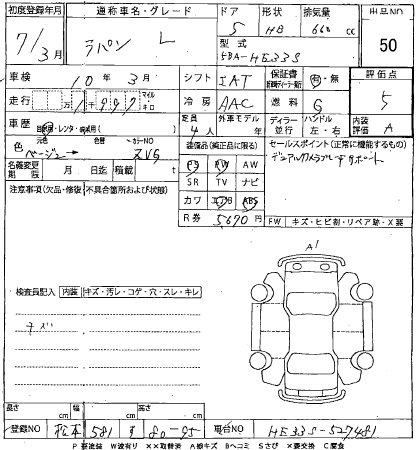 初度登録年月 通称車名・グレード ドア 形状 排気量 出品NO
7/3月 ラパン L 5 HB 660 cc 50
型式 5BA-HE33S
車検 10年 3月 シフト IAT 保証書 有・無 評価点
走行 万 1千997 マイル キロ 冷房 AAC 燃料 G 5
車歴 自家用・レンタ・ 定員 4人 外車モデル 年 ディーラー 並行 ハンドル 左・右 内装評価 A
色 元色 ベージュ → 色替 カラーNO ZVG 装備品(純正品に限る) セールスポイント(正常に機能するもの)
PS PW AW デュアルカメラブレーキサポート
名義変更期限 月 日迄 積載 t SR TV ナビ
注意事項(欠品・修復)不具合箇所および状態) カワ エアB ABS
R券 5670円 FW キズ・ヒビ割・リペア跡・X要
A1
検査員記入 内装 キズ・汚レ・コゲ・穴・スレ・キレ
キズ
長さ cm 幅 cm 高さ cm
登録NO 松本 581 す 80-95 車台NO HE33S-527481
P要塗装 W波有り XX取替済 A線キズ Bヘコミ Sさび X要交換 C腐食